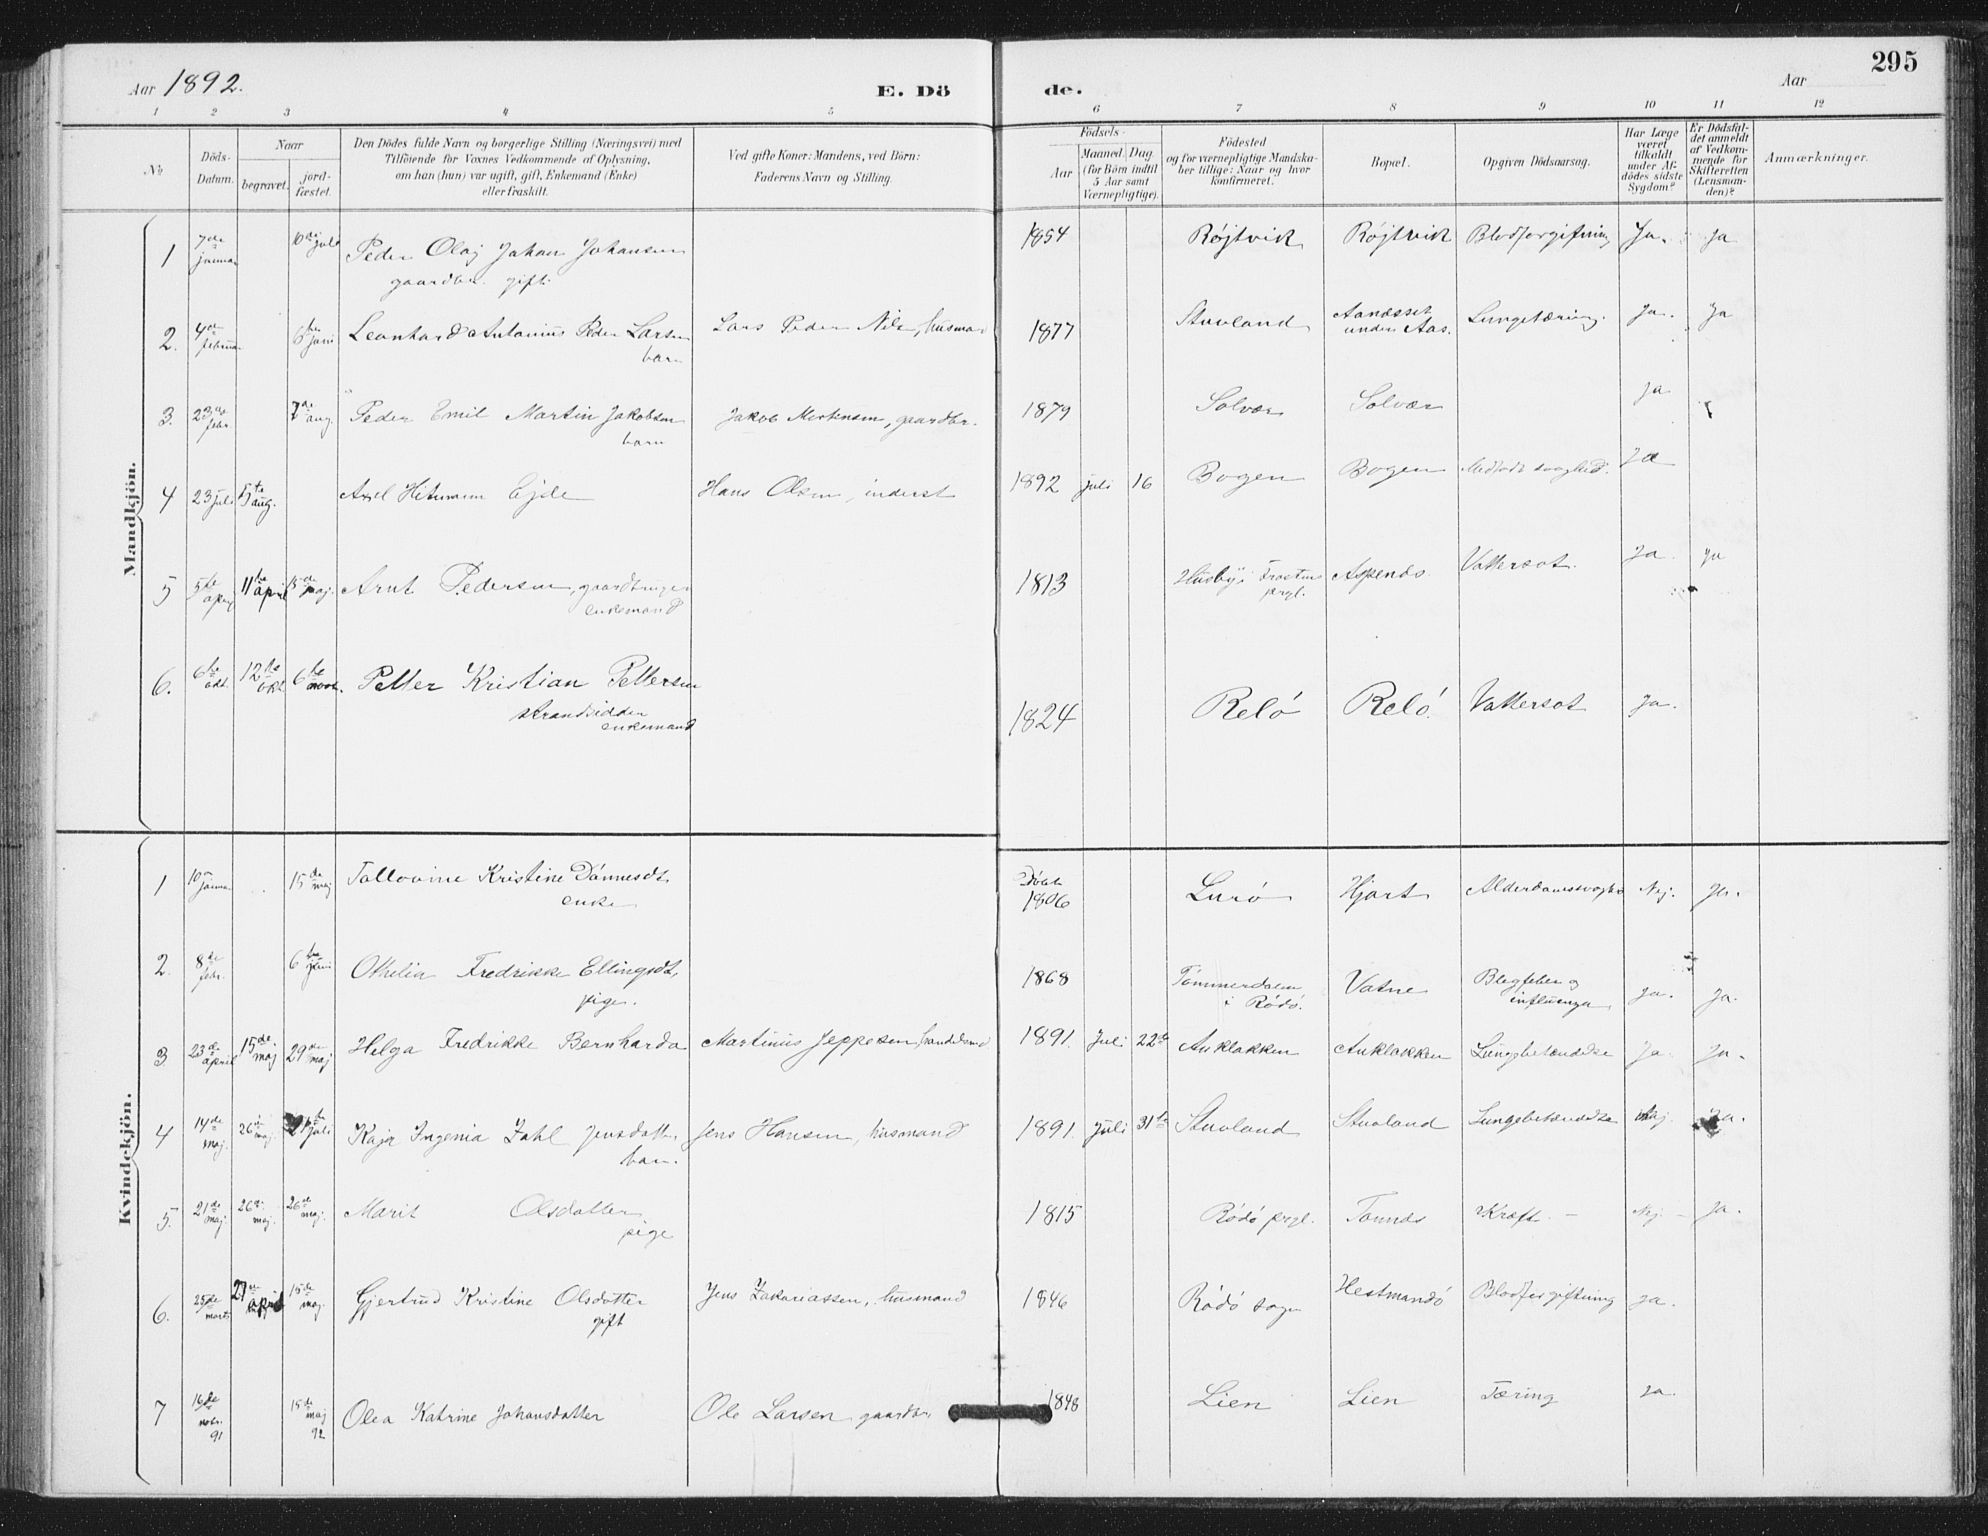 295
Aar 1892.
E. Dö
de.
Aar
1 2 3 4 5 6 7 8 9 10 11 12
No
Döds-
Datum.
Naar
begravet.
jord-
fæstet.
Den Dödes fulde Navn og borgerlige Stilling (Næringsvei) med
Tilföiende for Voxnes Vedkommende af Oplysning,
om han (hun) var ugift, gift, Enkemand (Enke)
eller fraskilt.
Ved gifte Koner: Mandens, ved Börn:
Faderens Navn og Stilling.
Födsels-
Aar
Maaned. Dag.
(for Börn indtil
5 Aar samt
Værnepligtige).
Födested
og for værnepligtige Mandska-
ber tillige: Naar og hvor
konfirmeret.
Bopæl.
Opgiven Dödsaarsag.
Har Læge
været
tilkaldt
under Af-
dödes sidste
Sygdom?
Er Dödsfal-
det anmeldt
af Vedkom-
mende for
Skifteretten
(Lensman-
den)?
Anmærkninger.
Mandkjön.
1 7de januar 10de juli Peder Olaj Johan Johansen 1854 Röjtvik Röjtvik Blodforgiftning Ja. Ja
gaardbr. gift.
2. 4de februar 6te juni Leonhard Antonius Peder Larsen Lars Peder Nils, husmand 1877 Stuvland Aanæsset under Aas. Lungetæring. Ja. Ja
barn
3. 23de febr. 7de aug. Peder Emil Martin Jakobsen Jakob Mortensen, gaardbr. 1879 Solvær Solvær Ja
barn
4 23 juli 5te aug. Axel Ejde Hans Olsen, inderst 1892 juli 16 Bogen Bogen Medfödt svaghed. Ja
5 5te april 11te april 15de maj. Arnt Pedersen, gaardbruger 1813 Husby i Frostens prgl. Aspenes Vattersot. Ja. Ja
enkemand
6. 6te okt. 12te okt. 6te novb. Petter Kristian Pettersen 1824 Relö Relö. Vattersot Ja.
strandsidder
enkemand
Kvindekjön.
1 10de januar 15de maj Tallovine Kristine Dönnesdt. Döbt 1806 Lurö Hjart Alderdomssvaghed Nej. Ja.
enke
2. 8de febr. 6te juni Othelia Fredrikke Ellingsdt. 1868 Tömmerdalen i Rödö. Vatne Blegfeber og influenza Ja. Ja.
pige.
3. 23de april 15de maj 29de maj Helga Fredrikke Bernharda Martinus Jeppesen, handelsmd 1891. Juli 22de Auklakken Auklakken Lungebetændelse Ja. Ja.
4 14de maj. 26de maj. juli Kaja Ingenia Zahl Jensdatter Jens Hansen, husmand 1891. Juli 31te Stuvland Stuvland Lungebetændelse Nej. Ja.
barn.
5. 21de maj. 26de maj. 26de maj. Marit Olsdatter 1815 Rödö prgl. Tonnes Kræft. – Nej. – Ja.
pige
6. 25de marts 27de april 15de maj. Gjertrud Kristine Olsdatter Jens Zakariassen, husmand 1846 Rödö sogn Hestmandö Blodforgiftning Ja.
gift
7 16de novbr. 91 15de maj 92 Olea Katrine Johansdatter Ole Larsen gaardbr. 1848 Lien Lien Tæring Ja.